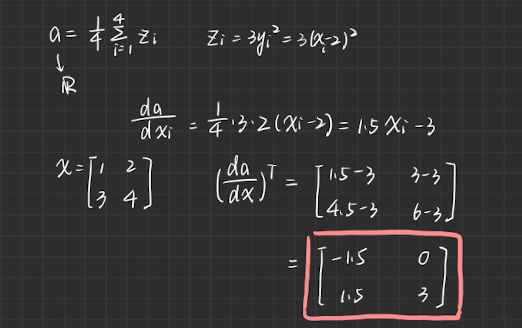 a = 1/4 Σ_{i=1}^{4} z_i    z_i = 3y_i² = 3(x_i-2)²
↓
ℝ
da/dx_i = 1/4 · 3 · 2(x_i-2) = 1.5x_i - 3
x = [1 2; 3 4]    (da/dx)^T = [1.5-3 3-3; 4.5-3 6-3]
= [-1.5 0; 1.5 3]